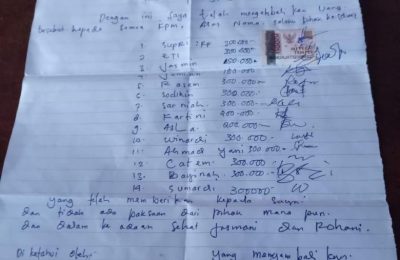 Dengan ini saya telah mengembalikan uang
tersebut kepada semua KPM. Atas Nama selaku pihak kedua
1 Supri : RP 300.000-
2 ETI 300.000-
3 Jasmin
4 300.000-
5 Kasam 300.000-
6 Sodikin 300.000-
7 Sarniah 300.000-
8 Kartini
9
10 Winardi 300.000-
11 Ahmad yani 300.000-
12 Catem 300.000-
13 300.000-
14 Sumardi 300000
yang telah memberikan kepada saya.
dan tidak ada paksaan dari pihak mana pun.
dan dalam keadaan sehat Jasmani dan Rohani.
Di ketahui oleh: yang mengembalikan